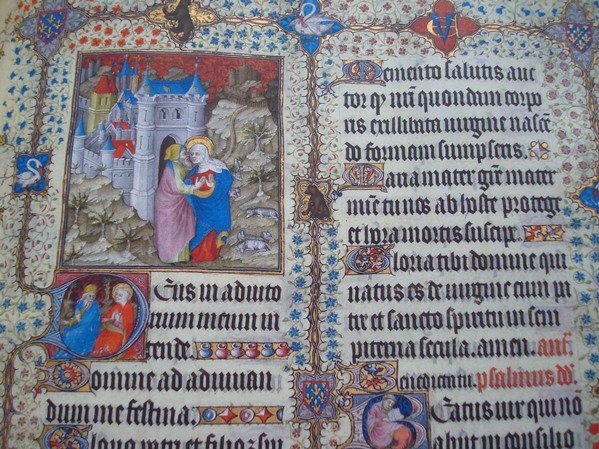 Deus in adiuto
rium meum in
tende.
Domine ad adiuuan
dum me festina.
Gloria patri et filio et spi
Memento salutis auc
tor q̄ nr̄i quondam corpo
ris ex illibata uirgine nascē
do formam sumpseris.
Maria mater gr̄e mater
mīe tu nos ab hoste protege
et hora mortis suscipe.
Gloria tibi domine qui
natus es de uirgine cum pa
tre et sancto spiritu in sem
piterna secula. amen. ant̄.
Benedicta tu. psalmus dd.
Beatus uir qui nō
abiit in consilio